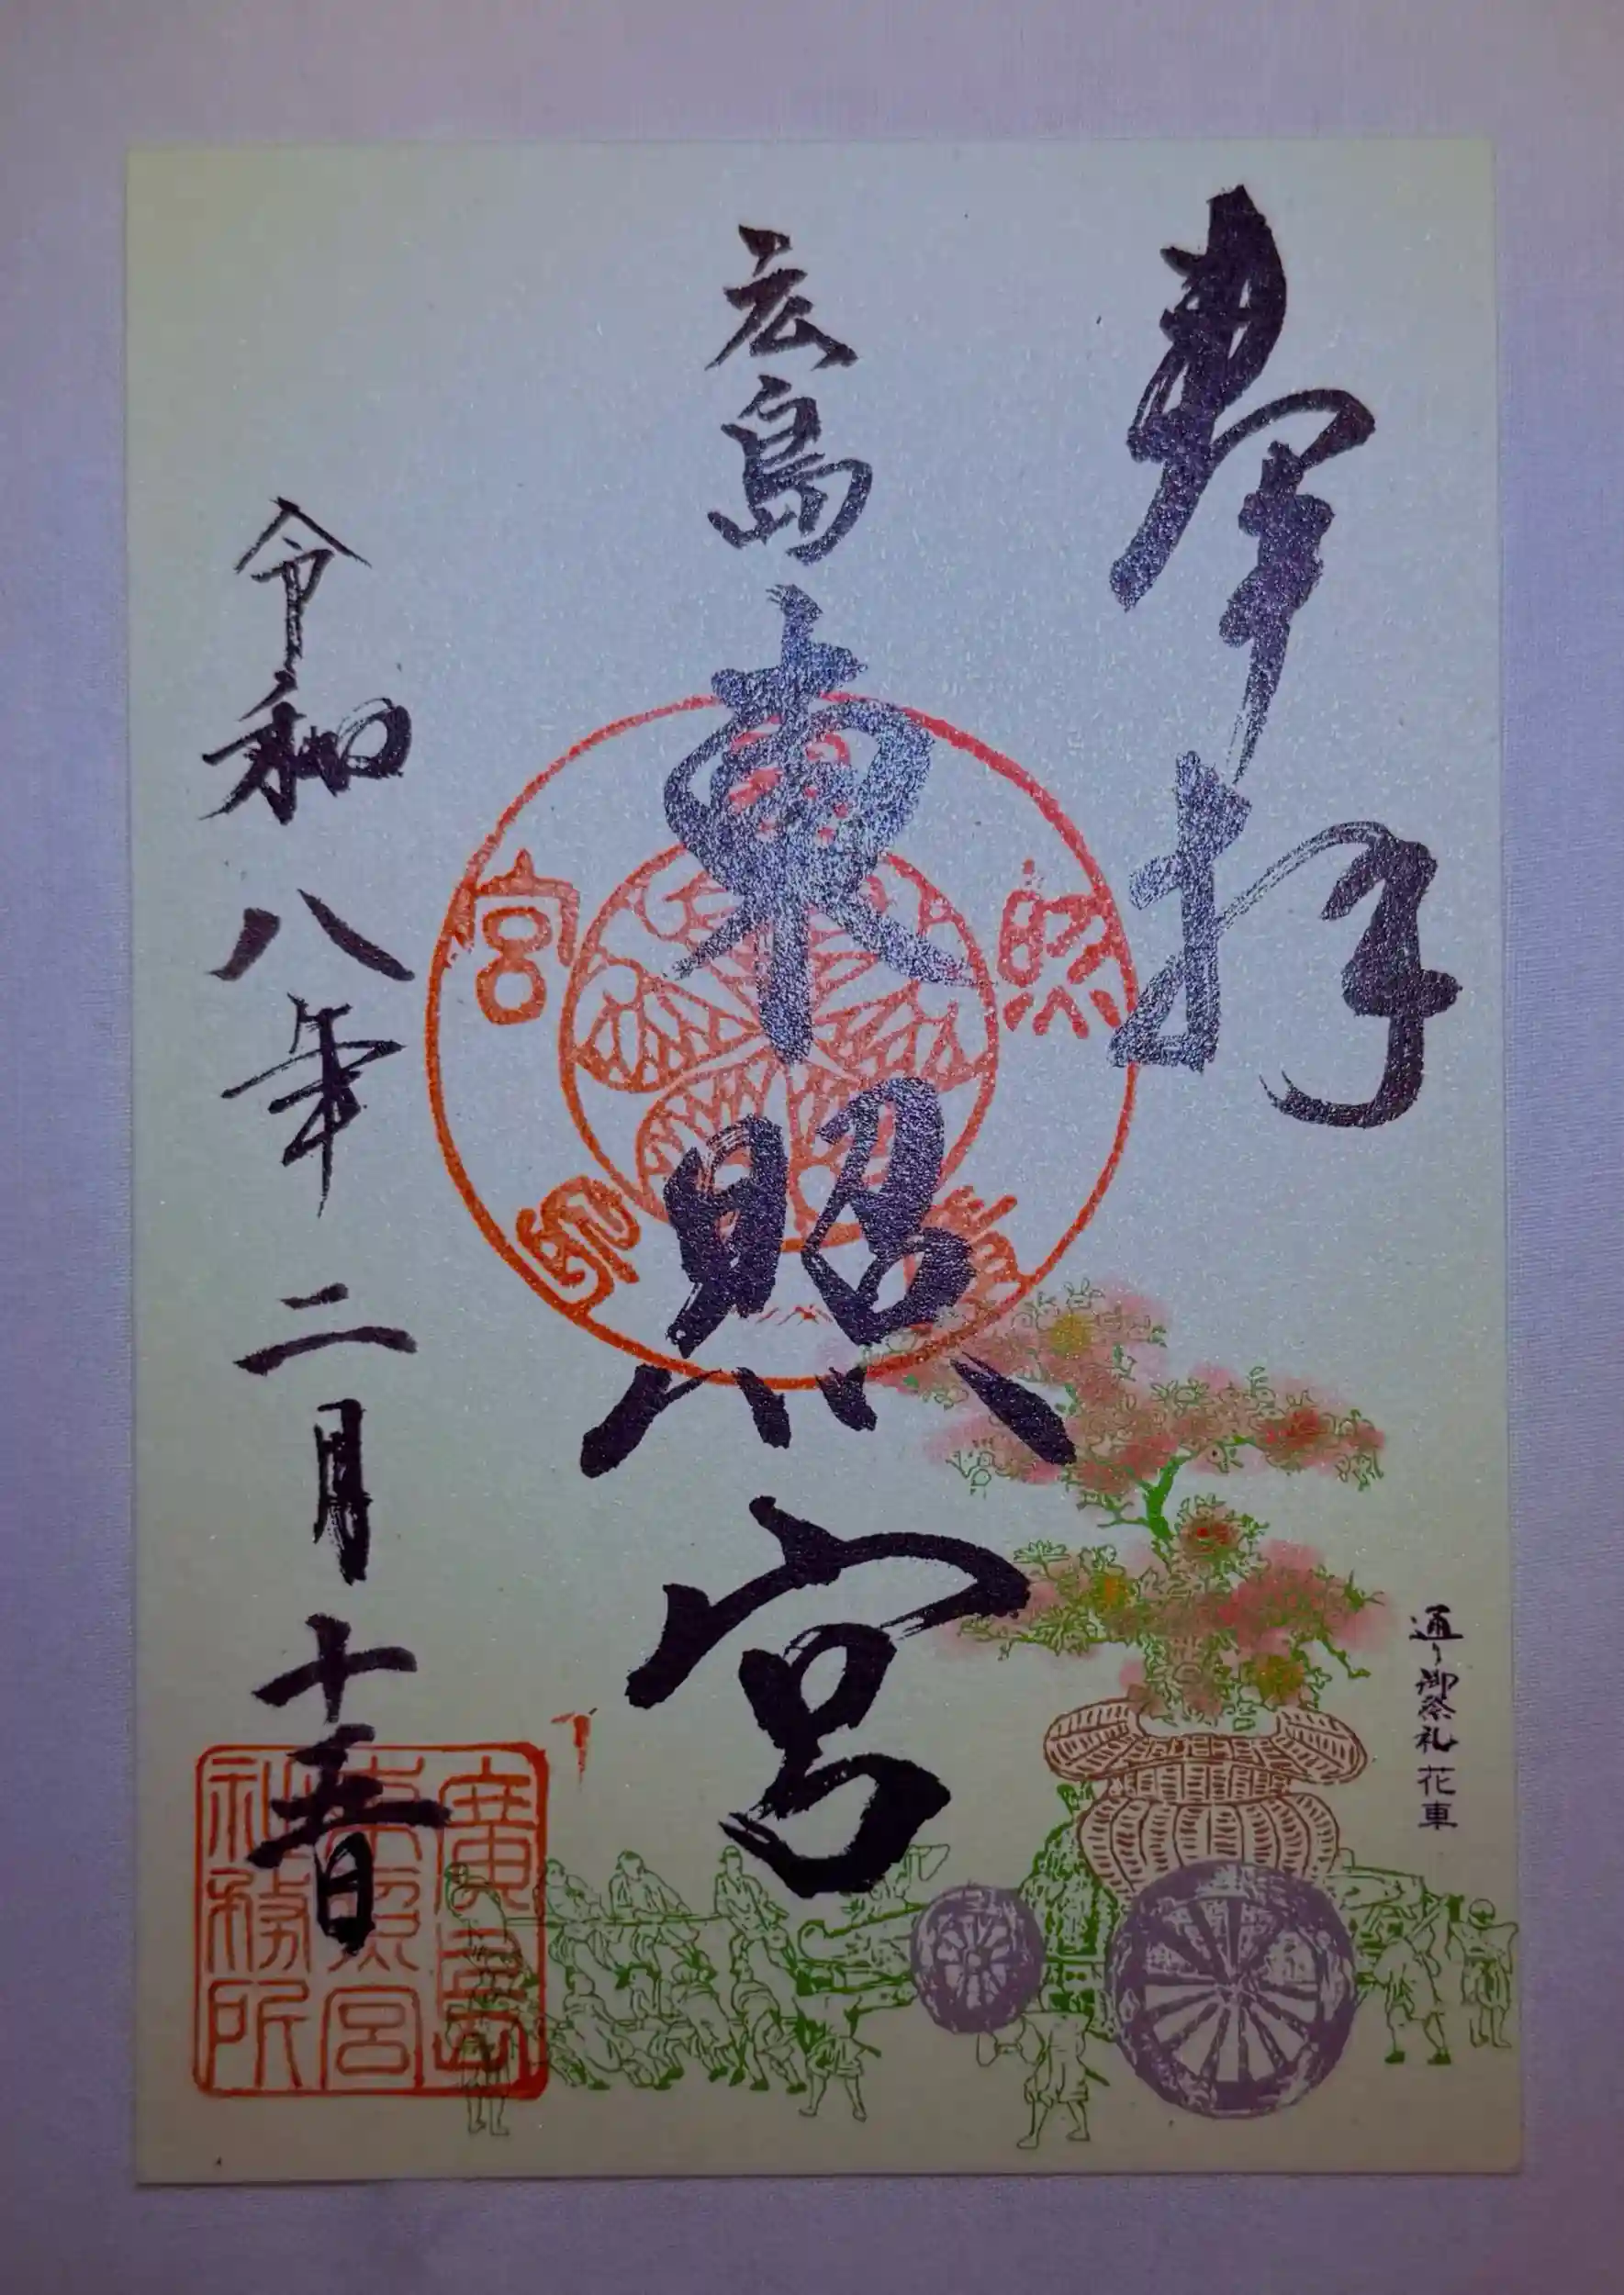 奉拝
広島東照宮
令和八年二月十五日
通り御祭礼 花車
東照宮
廣島東照宮社務所